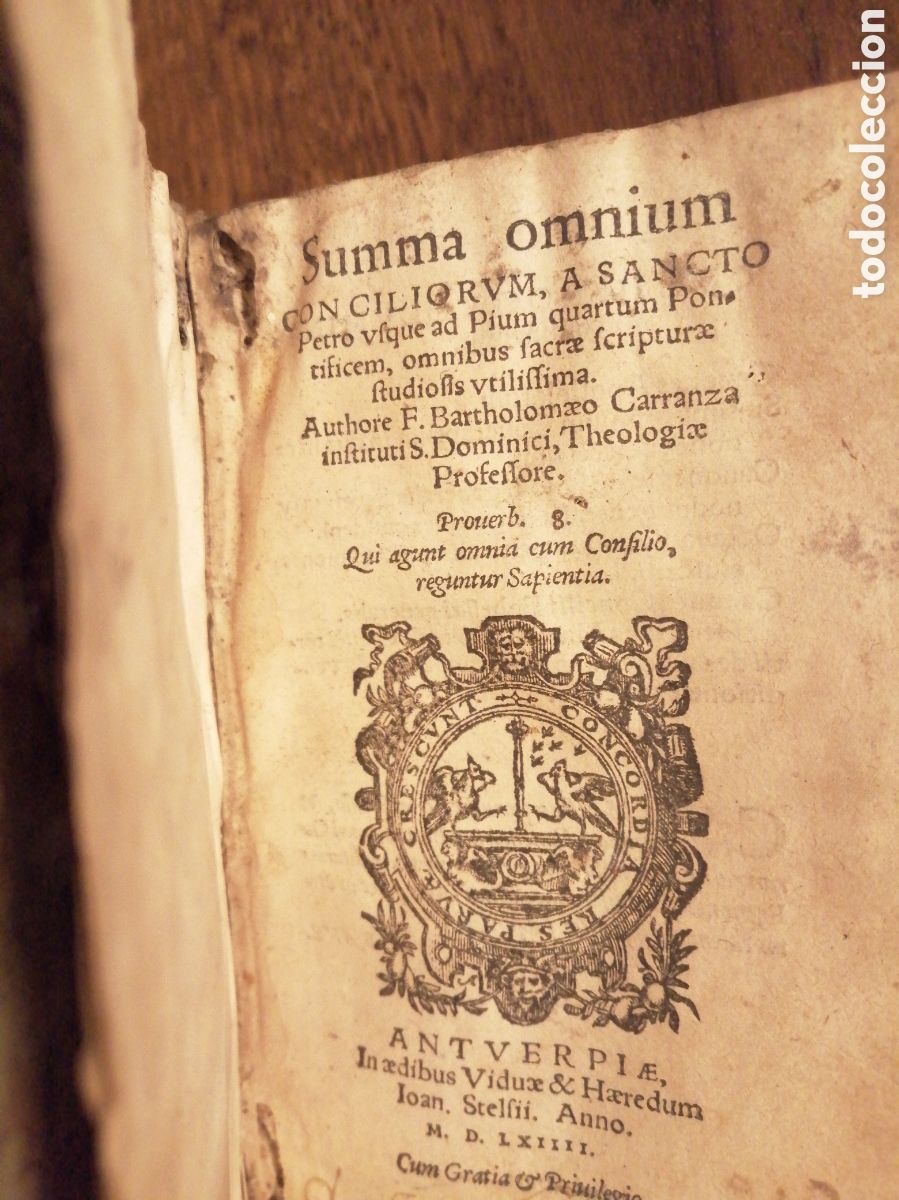 Summa omnium
CONCILIORVM, A SANCTO
Petro vſque ad Pium quartum Pon-
tificem, omnibus ſacræ ſcripturæ
ſtudioſis vtiliſſima.
Authore F. Bartholomæo Carranza
inſtituti S. Dominici, Theologiæ
Profeſſore.
Prouerb. 8.
Qui agunt omnia cum Conſilio,
reguntur Sapientia.
CONCORDIA RES PARVÆ CRESCVNT
ANTVERPIÆ,
In ædibus Viduæ & Hæredum
Ioan. Stelſii. Anno.
M. D. LXIIII.
Cum Gratia & Priuilegio
todocoleccion